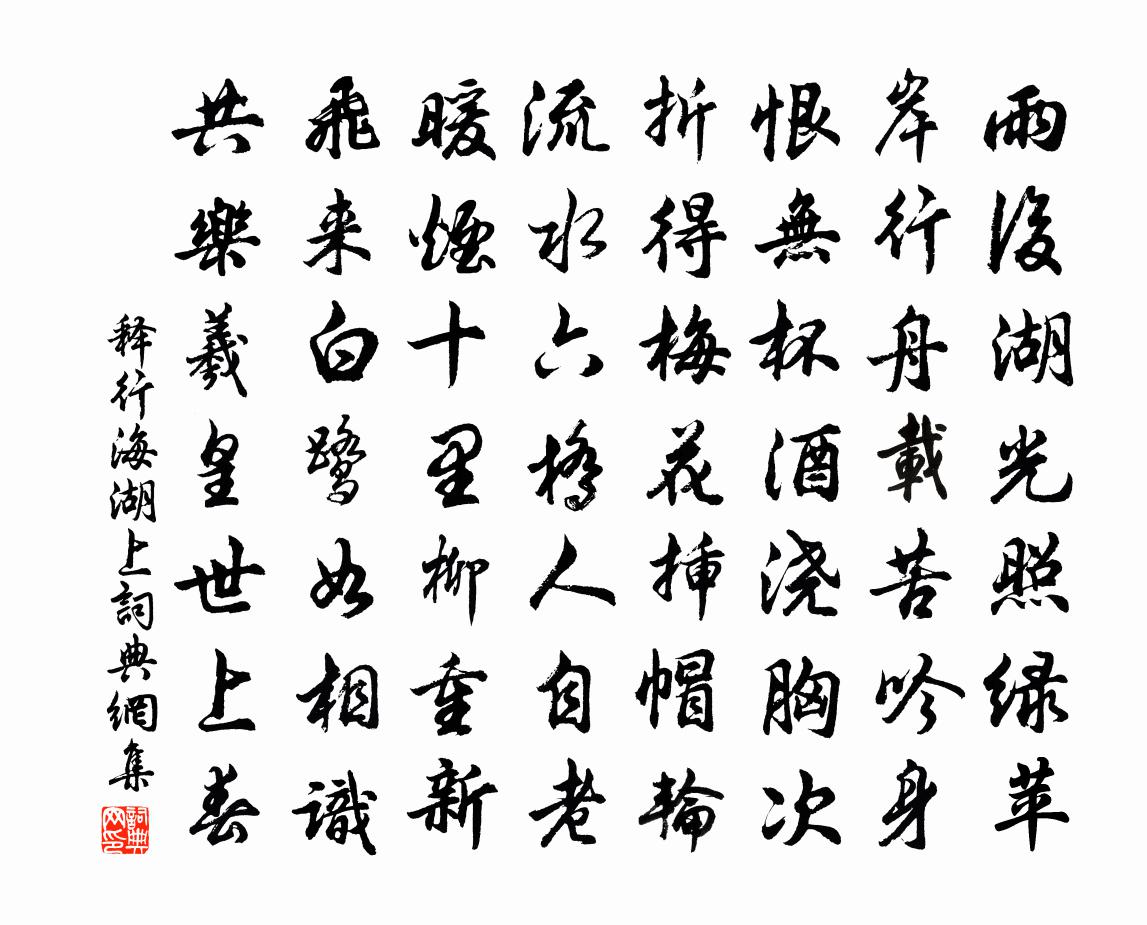 雨後湖光照緑苹
岸行舟載苦吟身
恨無杯酒浇胸次
折得梅花挿帽輪
流水六橋人自老
暖煙十里柳重新
飛来白鷺如相識
共樂羲皇世上春
释行海湖上詞典網集
詞典网印